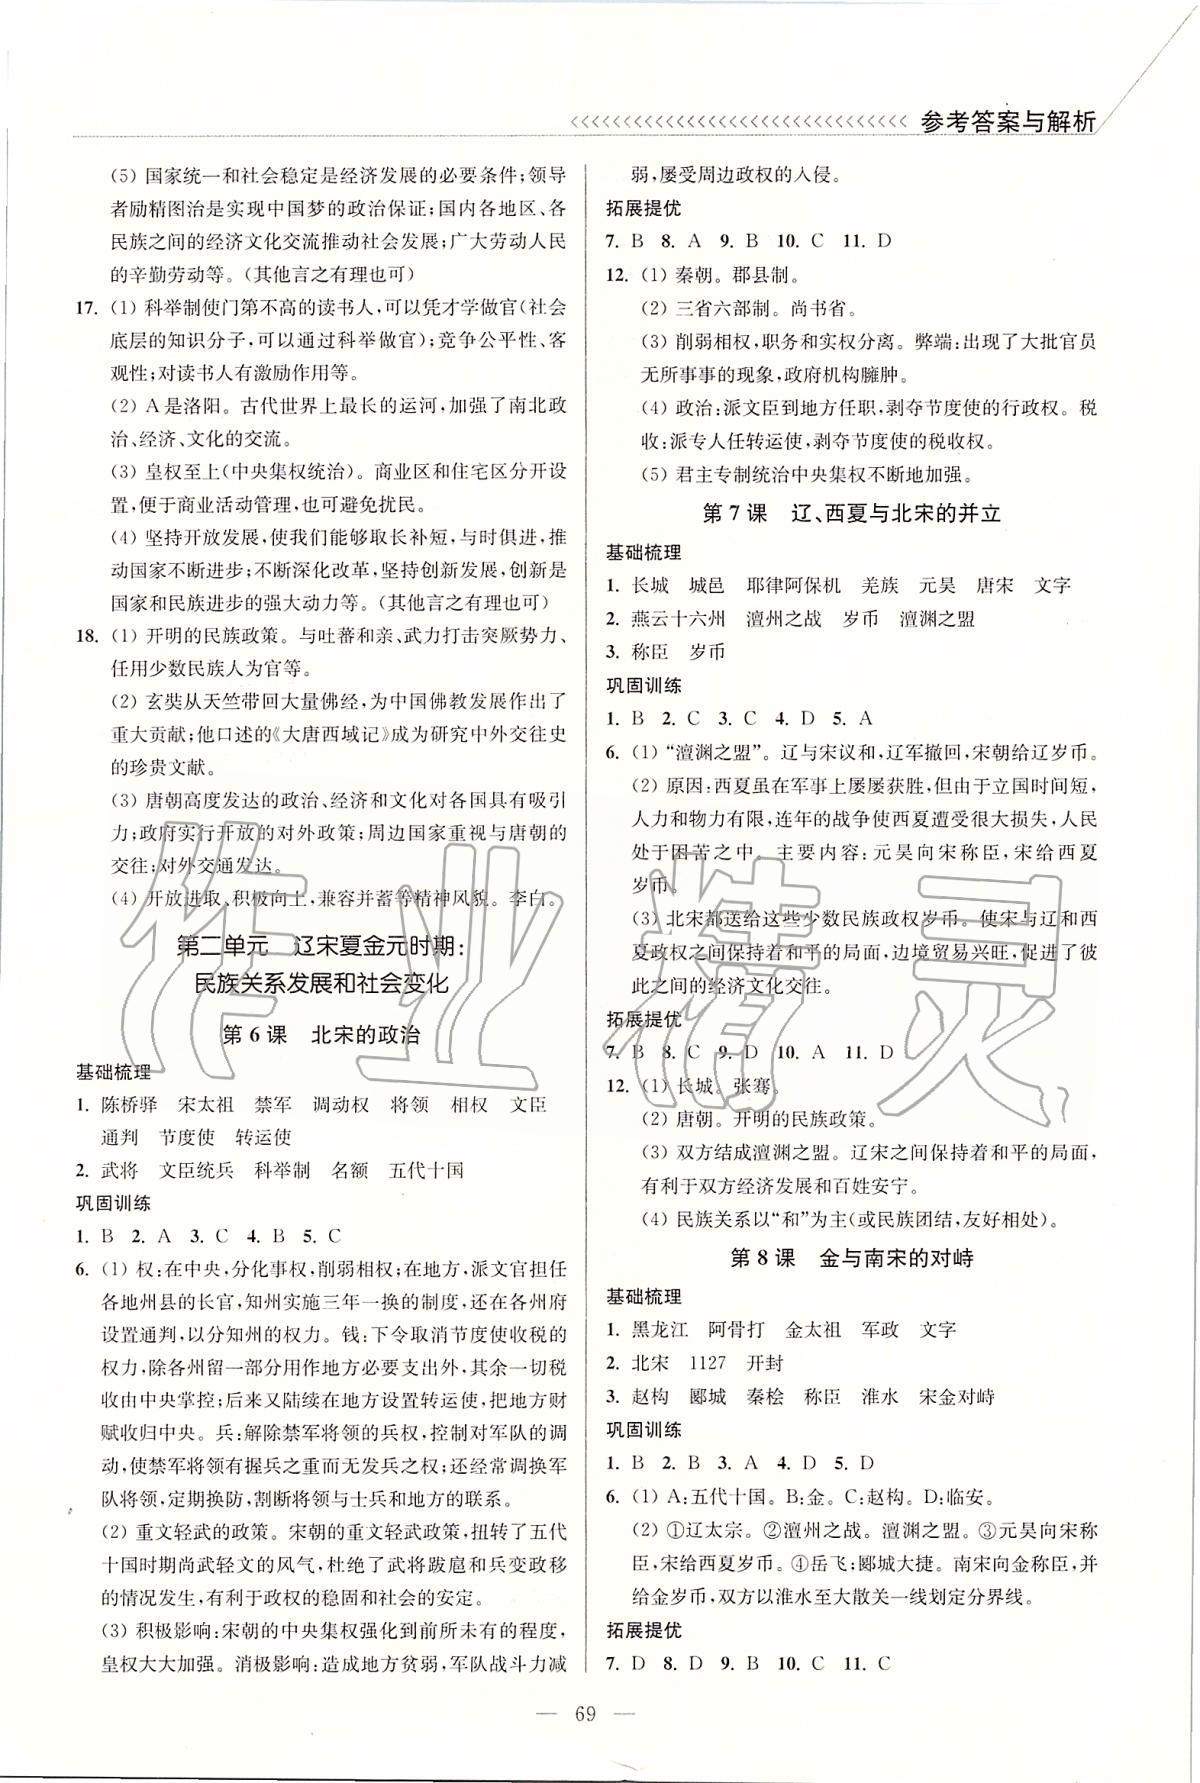 参考答案与解析
(5) 国家统一和社会稳定是经济发展的必要条件;领导
者励精图治是实现中国梦的政治保证;国内各地区、各
民族之间的经济文化交流推动社会发展;广大劳动人民
的辛勤劳动等。(其他言之有理也可)
17. (1) 科举制使门第不高的读书人,可以凭才学做官(社会
底层的知识分子,可以通过科举做官);竞争公平性、客
观性;对读书人有激励作用等。
(2) A是洛阳。古代世界上最长的运河,加强了南北政
治、经济、文化的交流。
(3) 皇权至上(中央集权统治)。商业区和住宅区分开设
置,便于商业活动管理,也可避免扰民。
(4) 坚持开放发展,使我们能够取长补短,与时俱进,推
动国家不断进步;不断深化改革,坚持创新发展,创新是
国家和民族进步的强大动力等。(其他言之有理也可)
18. (1) 开明的民族政策。与吐蕃和亲、武力打击突厥势力、
任用少数民族人为官等。
(2) 玄奘从天竺带回大量佛经,为中国佛教发展作出了
重大贡献;他口述的《大唐西域记》成为研究中外交往史
的珍贵文献。
(3) 唐朝高度发达的政治、经济和文化对各国具有吸引
力;政府实行开放的对外政策;周边国家重视与唐朝的
交往;对外交通发达。
(4) 开放进取、积极向上,兼容并蓄等精神风貌。李白。
第二单元 辽宋夏金元时期:
民族关系发展和社会变化
第 6 课 北宋的政治
基础梳理
1. 陈桥驿 宋太祖 禁军 调动权 将领 相权 文臣
通判 节度使 转运使
2. 武将 文臣统兵 科举制 名额 五代十国
巩固训练
1. B 2. A 3. C 4. B 5. C
6. (1) 权:在中央,分化事权,削弱相权;在地方,派文官担任
各地州县的长官,知州实施三年一换的制度,还在各州府
设置通判,以分知州的权力。钱:下令取消节度使收税的
权力,除各州留一部分用作地方必要支出外,其余一切税
收由中央掌控;后来又陆续在地方设置转运使,把地方财
赋收归中央。兵:解除禁军将领的兵权,控制对军队的调
动,使禁军将领有握兵之重而无发兵之权;还经常调换军
队将领,定期换防,割断将领与士兵和地方的联系。
(2) 重文轻武的政策。宋朝的重文轻武政策,扭转了五代
十国时期尚武轻文的风气,杜绝了武将跋扈和兵变政移
的情况发生,有利于政权的稳固和社会的安定。
(3) 积极影响:宋朝的中央集权强化到前所未有的程度,
皇权大大加强。消极影响:造成地方贫弱,军队战斗力减
弱,屡受周边政权的入侵。
拓展提优
7. B 8. A 9. B 10. C 11. D
12. (1) 秦朝。郡县制。
(2) 三省六部制。尚书省。
(3) 削弱相权,职务和实权分离。弊端:出现了大批官员
无所事事的现象,政府机构臃肿。
(4) 政治:派文臣到地方任职,剥夺节度使的行政权。税
收:派专人任转运使,剥夺节度使的税收权。
(5) 君主专制统治中央集权不断地加强。
第 7 课 辽、西夏与北宋的并立
基础梳理
1. 长城 城邑 耶律阿保机 羌族 元昊 唐宋 文字
2. 燕云十六州 澶州之战 岁币 澶渊之盟
3. 称臣 岁币
巩固训练
1. B 2. C 3. C 4. D 5. A
6. (1) “澶渊之盟”。辽与宋议和,辽军撤回,宋朝给辽岁币。
(2) 原因:西夏虽在军事上屡屡获胜,但由于立国时间短,
人力和物力有限,连年的战争使西夏遭受很大损失,人民
处于困苦之中。主要内容:元昊向宋称臣,宋给西夏
岁币。
(3) 北宋都送给这些少数民族政权岁币。使宋与辽和西
夏政权之间保持着和平的局面,边境贸易兴旺,促进了彼
此之间的经济文化交往。
拓展提优
7. B 8. C 9. D 10. A 11. D
12. (1) 长城。张骞。
(2) 唐朝。开明的民族政策。
(3) 双方结成澶渊之盟。辽宋之间保持着和平的局面,
有利于双方经济发展和百姓安宁。
(4) 民族关系以“和”为主(或民族团结,友好相处)。
第 8 课 金与南宋的对峙
基础梳理
1. 黑龙江 阿骨打 金太祖 军政 文字
2. 北宋 1127 开封
3. 赵构 郾城 秦桧 称臣 淮水 宋金对峙
巩固训练
1. B 2. B 3. A 4. D 5. D
6. (1) A:五代十国。B:金。C:赵构。D:临安。
(2) ①辽太宗。②澶州之战。澶渊之盟。③元昊向宋称
臣,宋给西夏岁币。④岳飞;郾城大捷。南宋向金称臣,并
给金岁币,双方以淮水至大散关一线划定分界线。
拓展提优
7. D 8. D 9. B 10. C 11. C
— 69 —
作业精灵